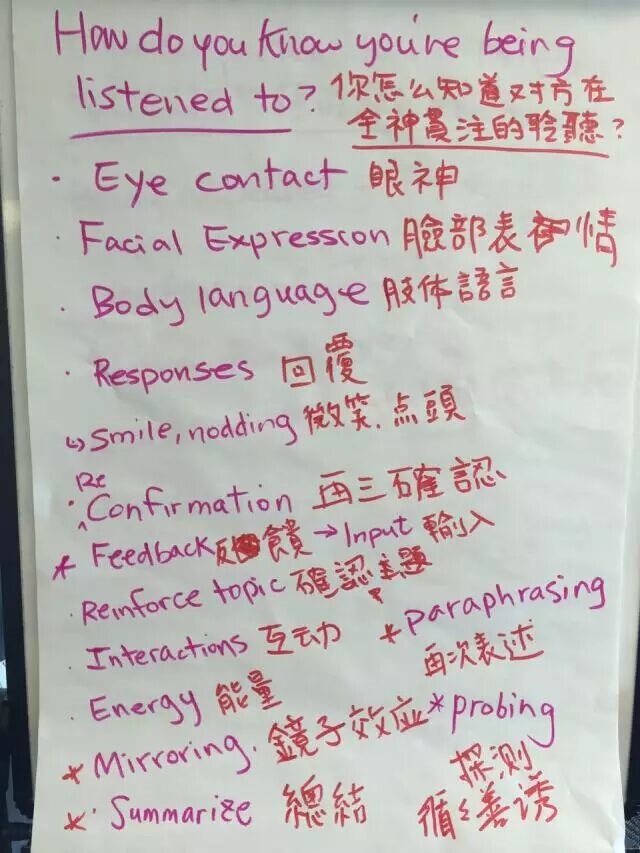 How do you know you're being
listened to? 你怎么知道对方在
全神貫注的聆聽?
· Eye contact 眼神
· Facial Expression 臉部表情
· Body language 肢体語言
· Responses 回覆
↳ smile, nodding 微笑、点頭
· Reconfirmation 再三確認
* Feedback 反饋 → Input 輸入
· Reinforce topic 確認主題
· Interactions 互动
* paraphrasing
再次表述
· Energy 能量
* Mirroring. 鏡子效应
* probing
探测
循々善诱
* · Summarize 總結